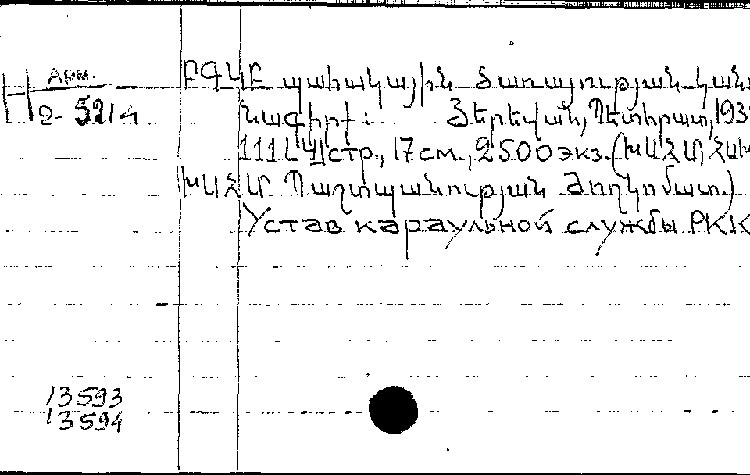 Арм.
2-5214
ԲԳԿԲ պահակային ծառայության կան
Նախիրճ: Յերեվան, Պետհրատ, 193
111[4]стр., 17 см., 2500 экз. (ԽՍՀՄ
ԽՍՀՄ Պաշտպանության Ժողկոմատ.)
Устав караульной службы РКК
13593
13594